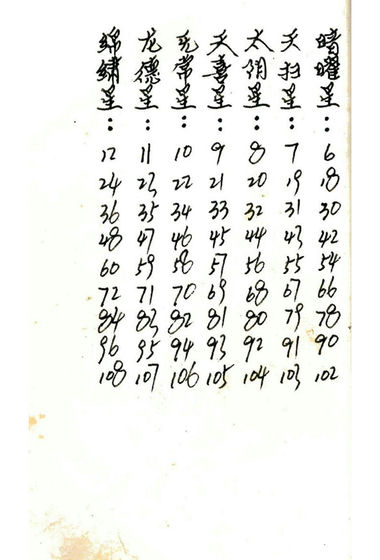 暗曜星：6 18 30 42 54 66 78 90 102
天扫星：7 19 31 43 55 67 79 91 103
太阴星：8 20 32 44 56 68 80 92 104
天喜星：9 21 33 45 57 69 81 93 105
无常星：10 22 34 46 58 70 82 94 106
龙德星：11 23 35 47 59 71 83 95 107
绵绣星：12 24 36 48 60 72 84 96 108